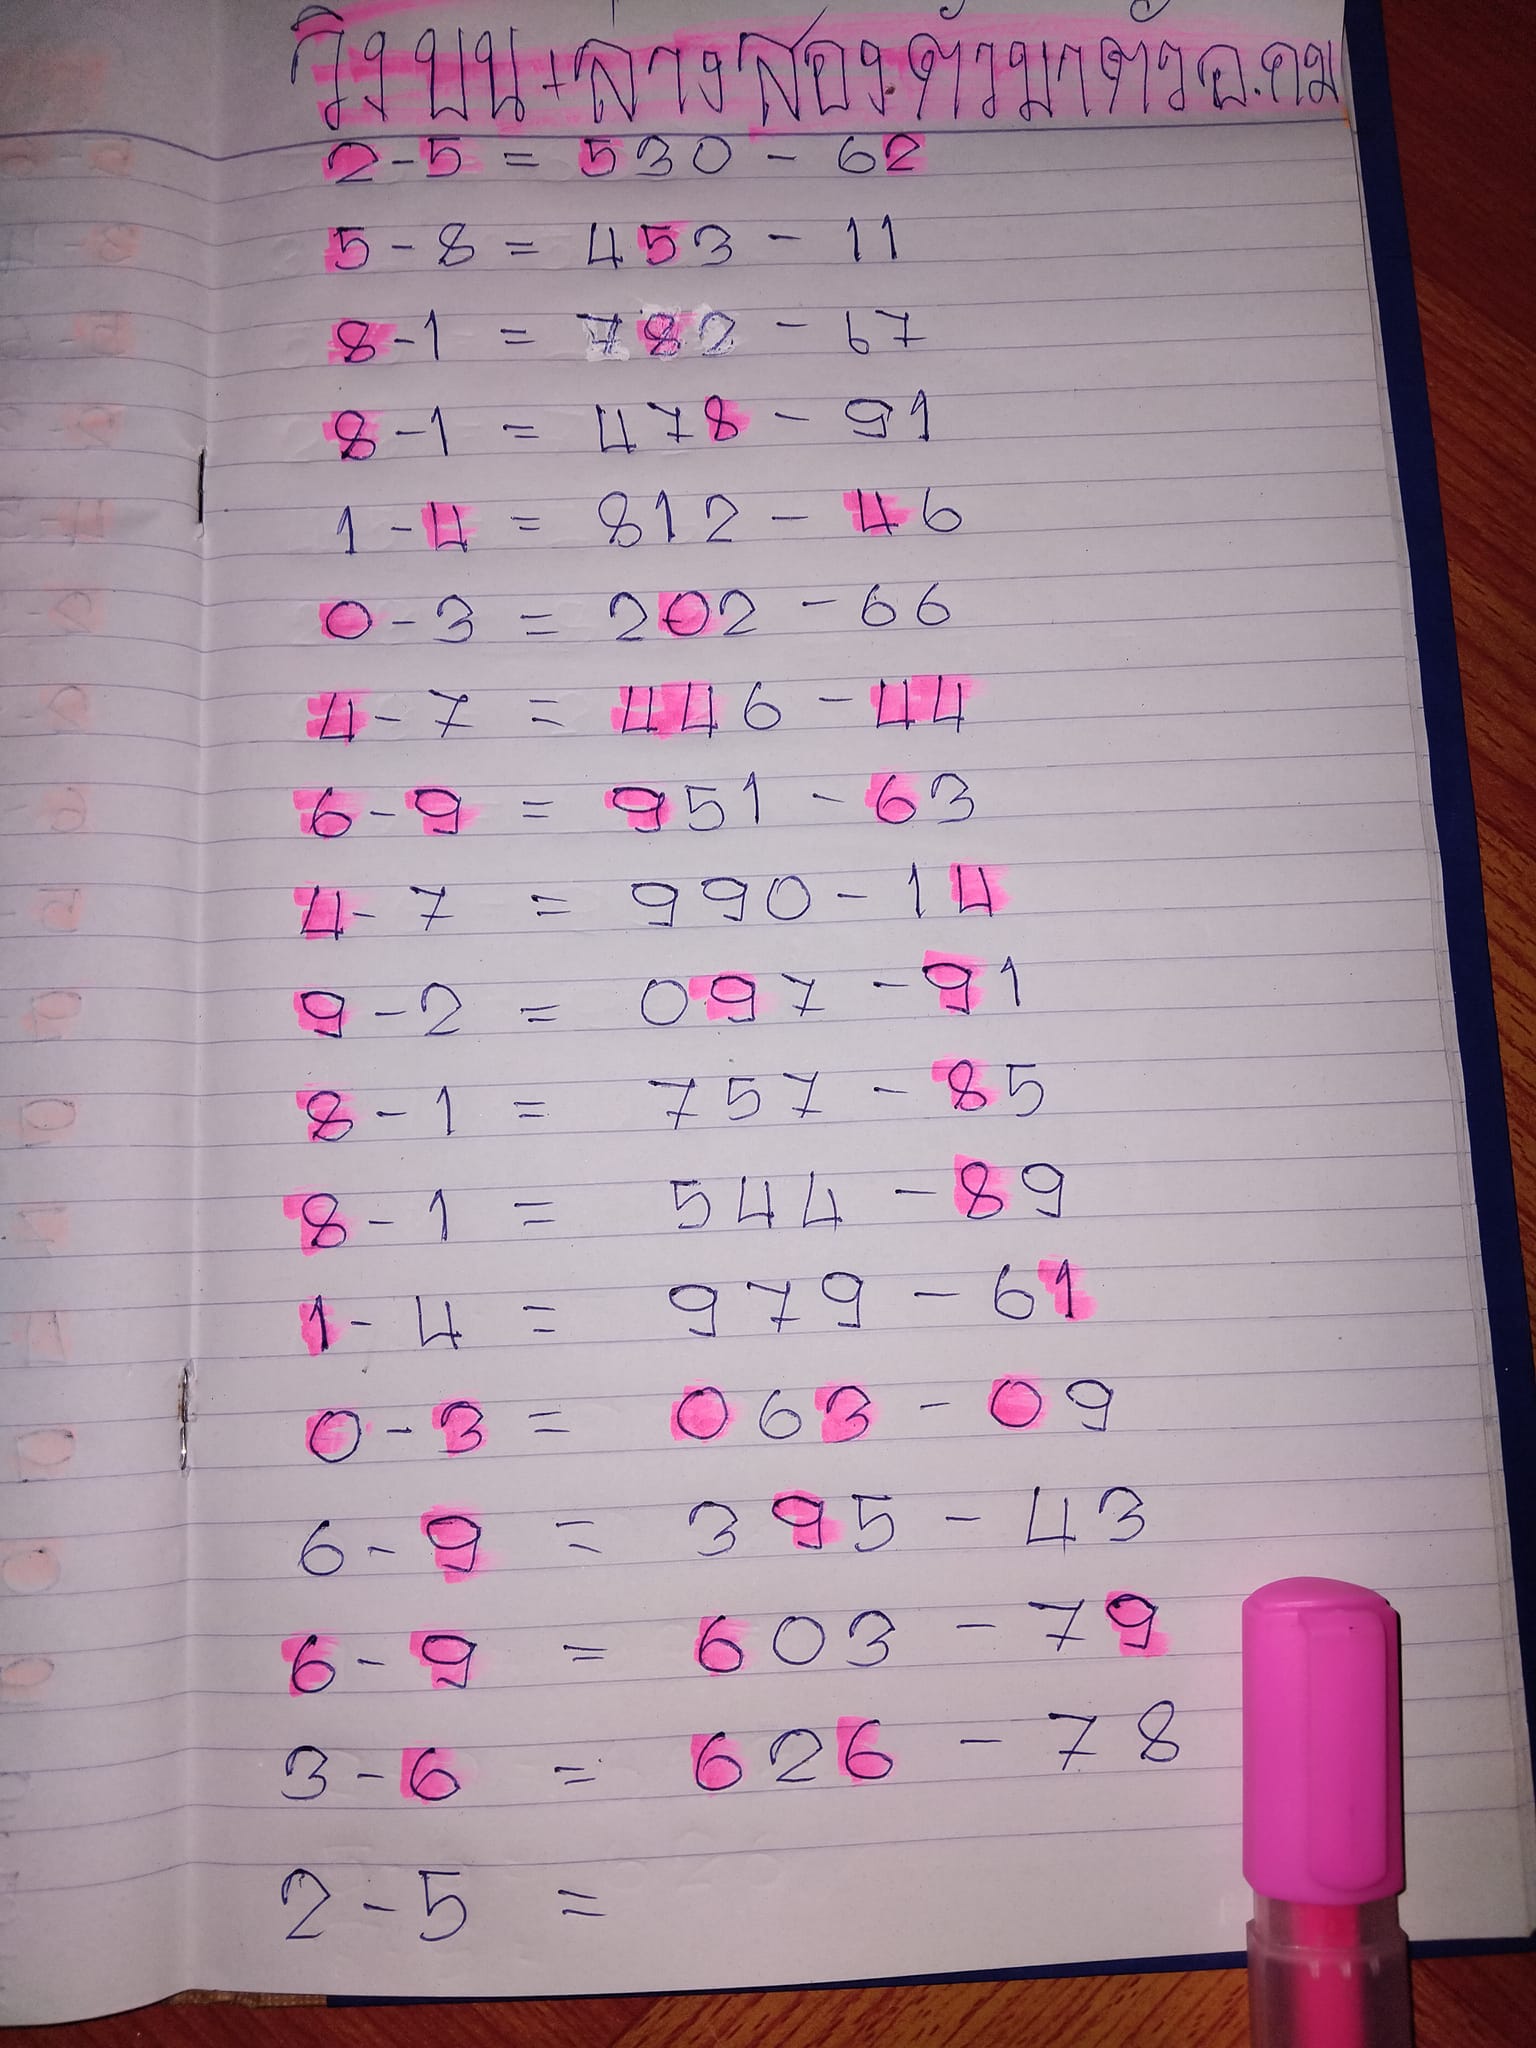 วิ่งบน+ล่างสองตัวมาตัวอ.คม
2-5 = 530 - 62
5-8 = 453 - 11
8-1 = 782 - 67
8-1 = 478 - 91
1-4 = 812 - 46
0-3 = 202 - 66
4-7 = 446 - 44
6-9 = 951 - 63
4-7 = 990 - 14
9-2 = 097 - 91
8-1 = 757 - 85
8-1 = 544 - 89
1-4 = 979 - 61
0-3 = 063 - 09
6-9 = 395 - 43
6-9 = 603 - 79
3-6 = 626 - 78
2-5 =